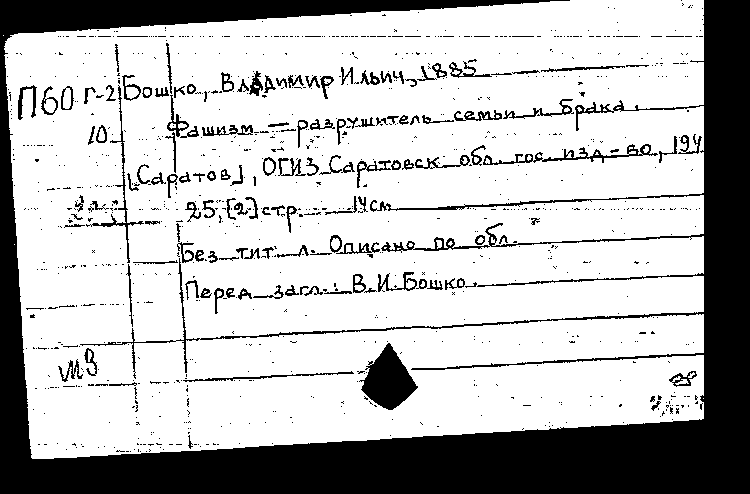 П60 Г-2 Бошко, Владимир Ильич, 1885
10 Фашизм — разрушитель семьи и брака.
[Саратов], ОГИЗ Саратовск обл. гос. изд-во, 194
25, [2] стр. 14 см
Без тит. л. Описано по обл.
Перед загл.: В. И. Бошко.